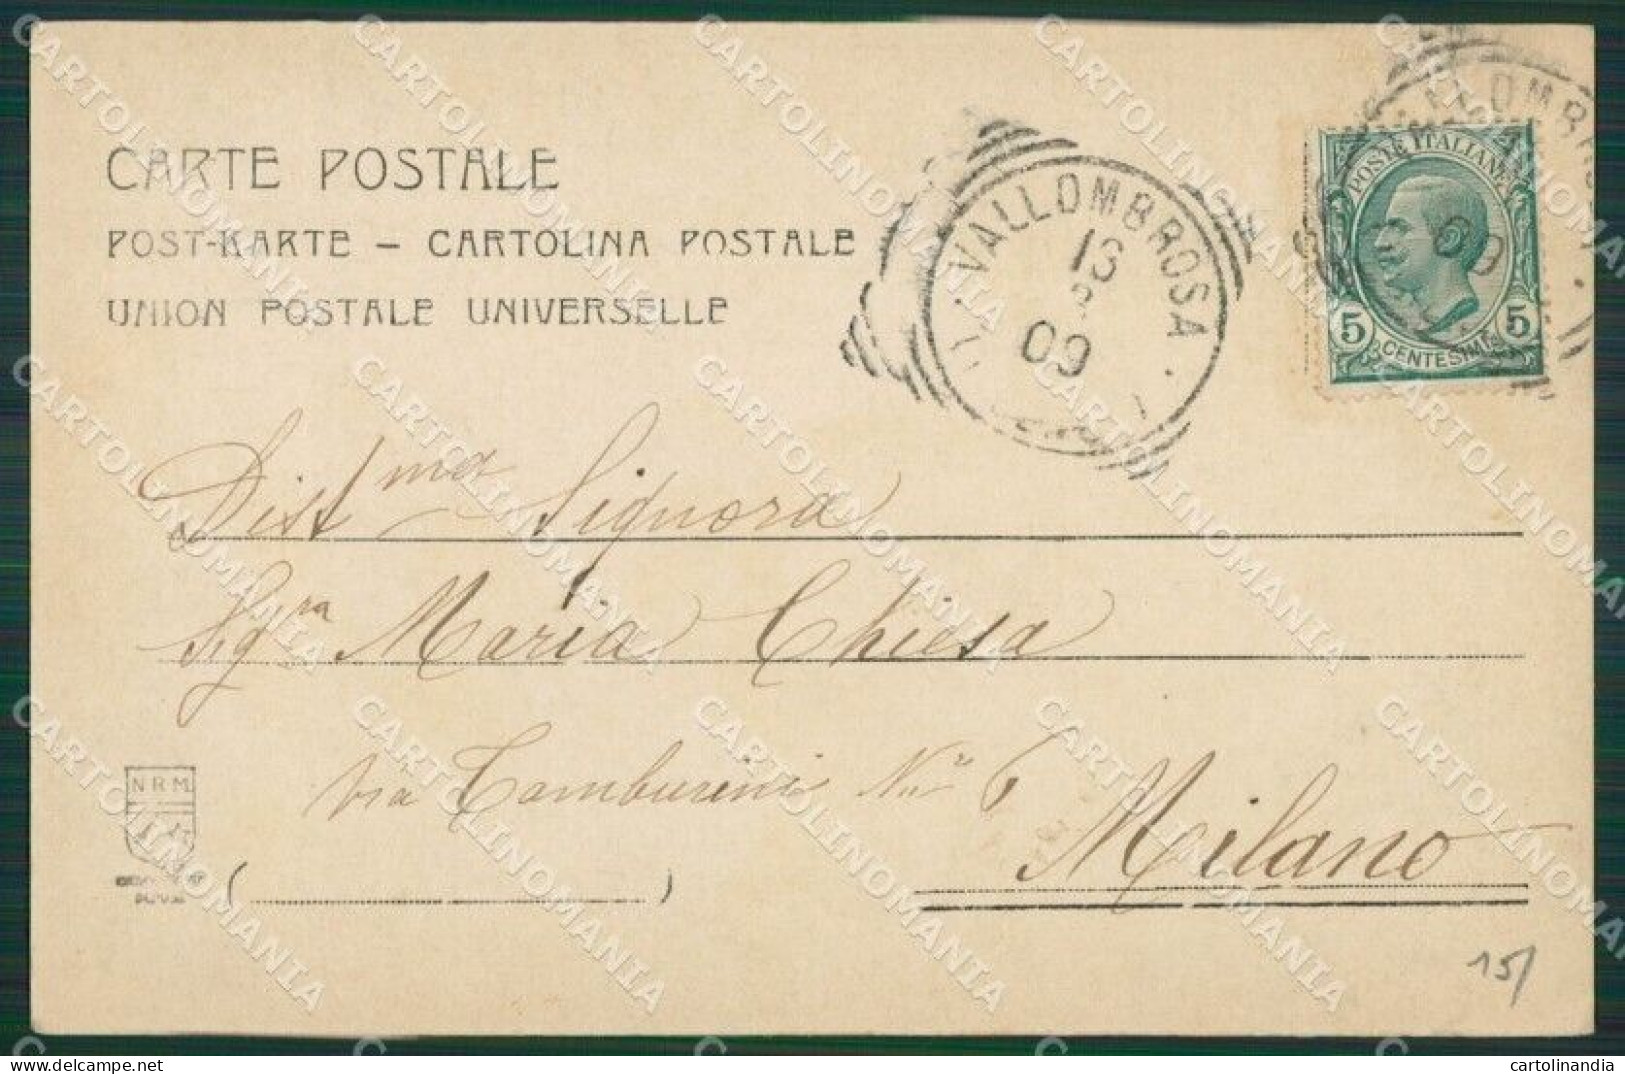 CARTE POSTALE
POST-KARTE – CARTOLINA POSTALE
UNION POSTALE UNIVERSELLE
VALLOMBROSA
09
POSTE ITALIANE
5 CENTESIMI 5
Distma Signora
Sigra Maria Chiesa
via Tamburini Nr 6
Milano
N.R.M.
15/
CARTOLINOMANIA
cartolinandia